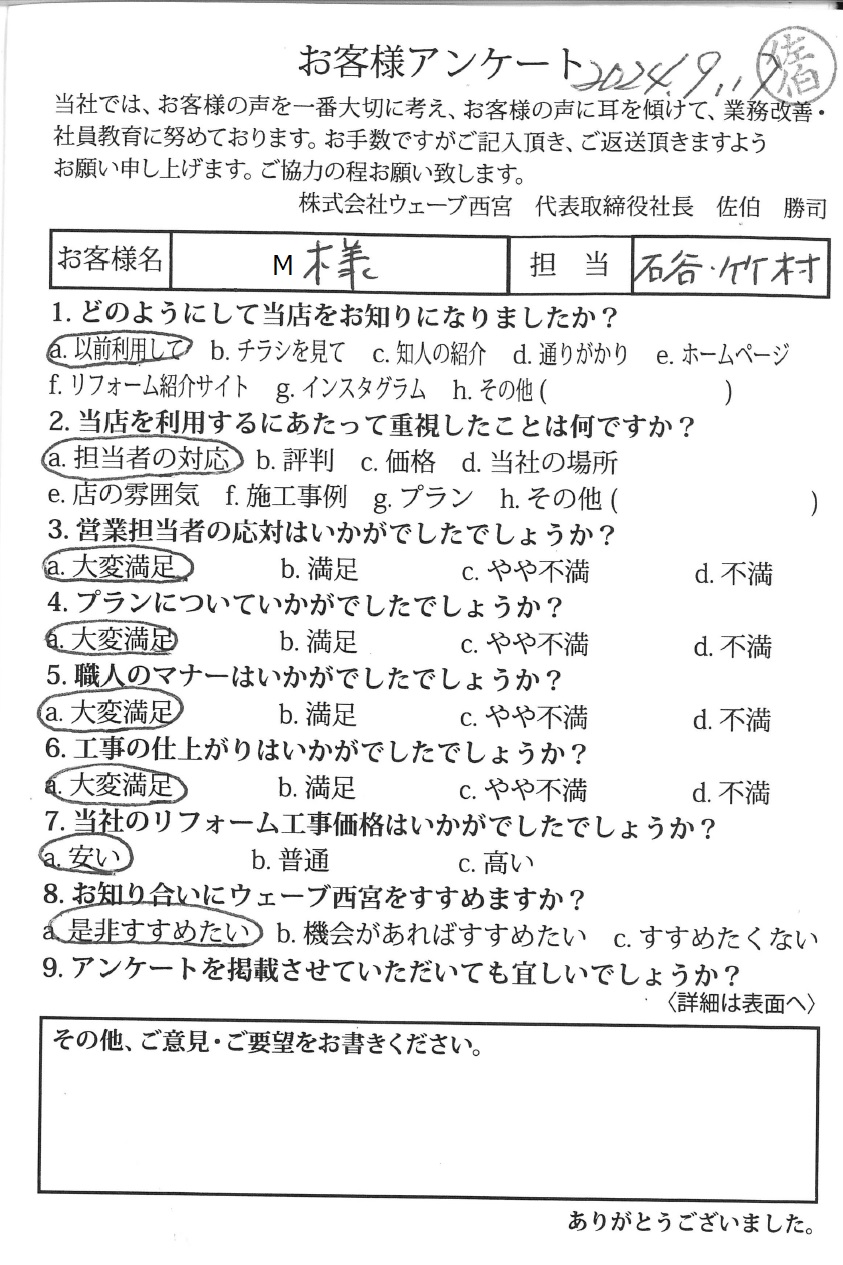 お客様アンケート 2024.9.17 佐伯
当社では、お客様の声を一番大切に考え、お客様の声に耳を傾けて、業務改善・
社員教育に努めております。お手数ですがご記入頂き、ご返送頂きますよう
お願い申し上げます。ご協力の程お願い致します。
株式会社ウェーブ西宮 代表取締役社長 佐伯 勝司
お客様名 M 様 担 当 石谷・竹村
1. どのようにして当店をお知りになりましたか？
a. 以前利用して b. チラシを見て c. 知人の紹介 d. 通りがかり e. ホームページ
f. リフォーム紹介サイト g. インスタグラム h. その他 ( )
2. 当店を利用するにあたって重視したことは何ですか？
a. 担当者の対応 b. 評判 c. 価格 d. 当社の場所
e. 店の雰囲気 f. 施工事例 g. プラン h. その他 ( )
3. 営業担当者の応対はいかがでしたでしょうか？
a. 大変満足 b. 満足 c. やや不満 d. 不満
4. プランについていかがでしたでしょうか？
a. 大変満足 b. 満足 c. やや不満 d. 不満
5. 職人のマナーはいかがでしたでしょうか？
a. 大変満足 b. 満足 c. やや不満 d. 不満
6. 工事の仕上がりはいかがでしたでしょうか？
a. 大変満足 b. 満足 c. やや不満 d. 不満
7. 当社のリフォーム工事価格はいかがでしたでしょうか？
a. 安い b. 普通 c. 高い
8. お知り合いにウェーブ西宮をすすめますか？
a. 是非すすめたい b. 機会があればすすめたい c. すすめたくない
9. アンケートを掲載させていただいても宜しいでしょうか？
〈詳細は表面へ〉
その他、ご意見・ご要望をお書きください。
ありがとうございました。